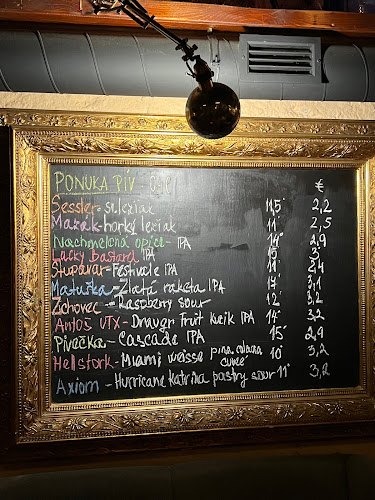 PONUKA PÍV
€
Sessler - sul.ežiak 11,5° 2,2
Mazák - horký ležiak 11° 2,5
Nachmelená opice - IPA 14° 2,9
Lucky Bastard IPA 15° 3
Stupavar - Festivale IPA 11° 2,4
Matuška - Zlatá raketa IPA 17° 3,1
Zichovec - Raspberry sour 12° 3,2
Antoš VTX - Draver Fruit Kveik IPA 14° 3,2
Pivečka - Cascade IPA 15° 2,9
Hellstork - Miami weisse pina colada cuveé 10° 3,2
Axiom - Hurricane Katrina pastry sour 11° 3,2